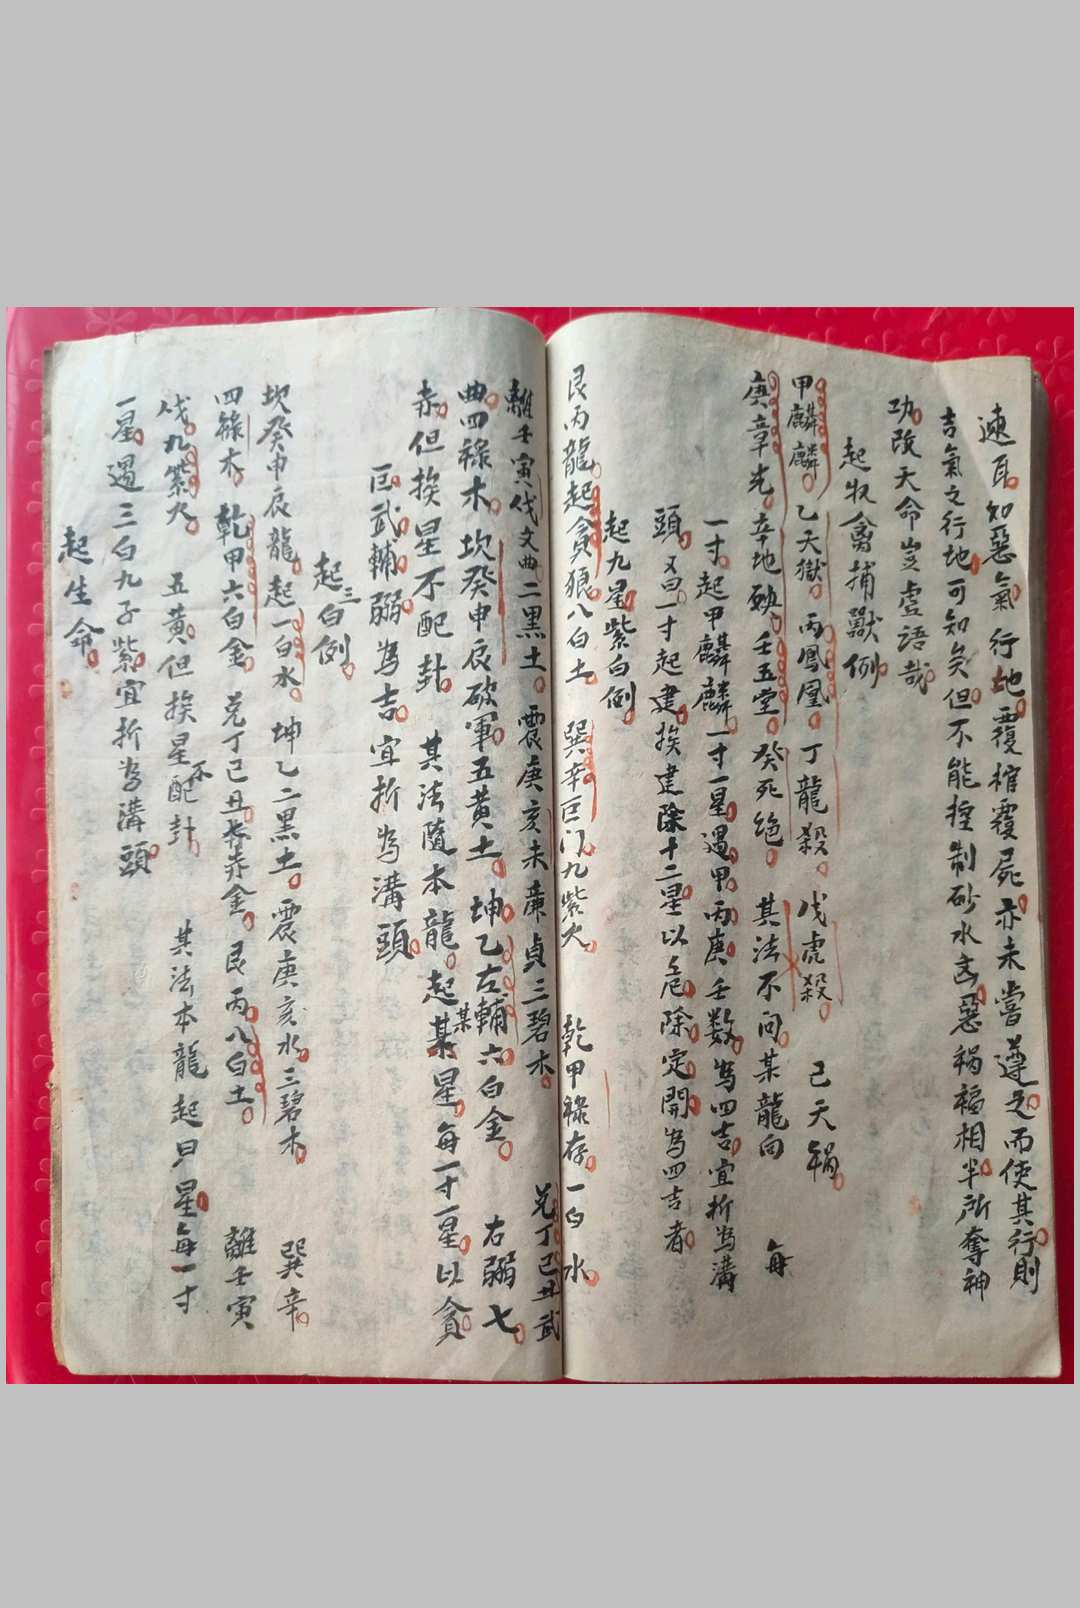 速耳知惡氣行地覆棺覆屍亦未嘗遵之而使其行則
吉氣之行地可知矣但不能控制砂水吉惡禍福相半所奪神
功改天命豈虛語哉
起牧禽捕獸例
甲麟麟乙天獄丙鳳凰丁龍殺戊虎殺己天禍
庚章光辛地殃壬五堂癸死絕其法不問某龍向每
一寸起甲麟麟一寸一星遇甲丙庚壬数為四吉宜折為溝
頭又曰一寸起建挨建除十二星以危除定開為四吉者
起九星紫白例
艮丙龍起貪狼八白土巽辛巨门九紫火乾甲祿存一白水
離壬寅伐文曲二黑土震庚亥未廉貞三碧木兌丁己丑武
曲四祿木坎癸申辰破軍五黄土坤乙左輔六白金右弼七
赤但挨星不配卦其法隨本龍起某某星每一寸一星以貪
巨武輔弼為吉宜折為溝頭
起三白例
坎癸申辰龍起一白水坤乙二黑土震庚亥水三碧木巽辛
四綠木乾甲六白金兌丁己丑赤金艮丙八白土離壬寅
伐九紫火五黄但挨星不配卦其法本龍起只星每一寸
一星遇三白九子紫宜折為溝頭
起生命